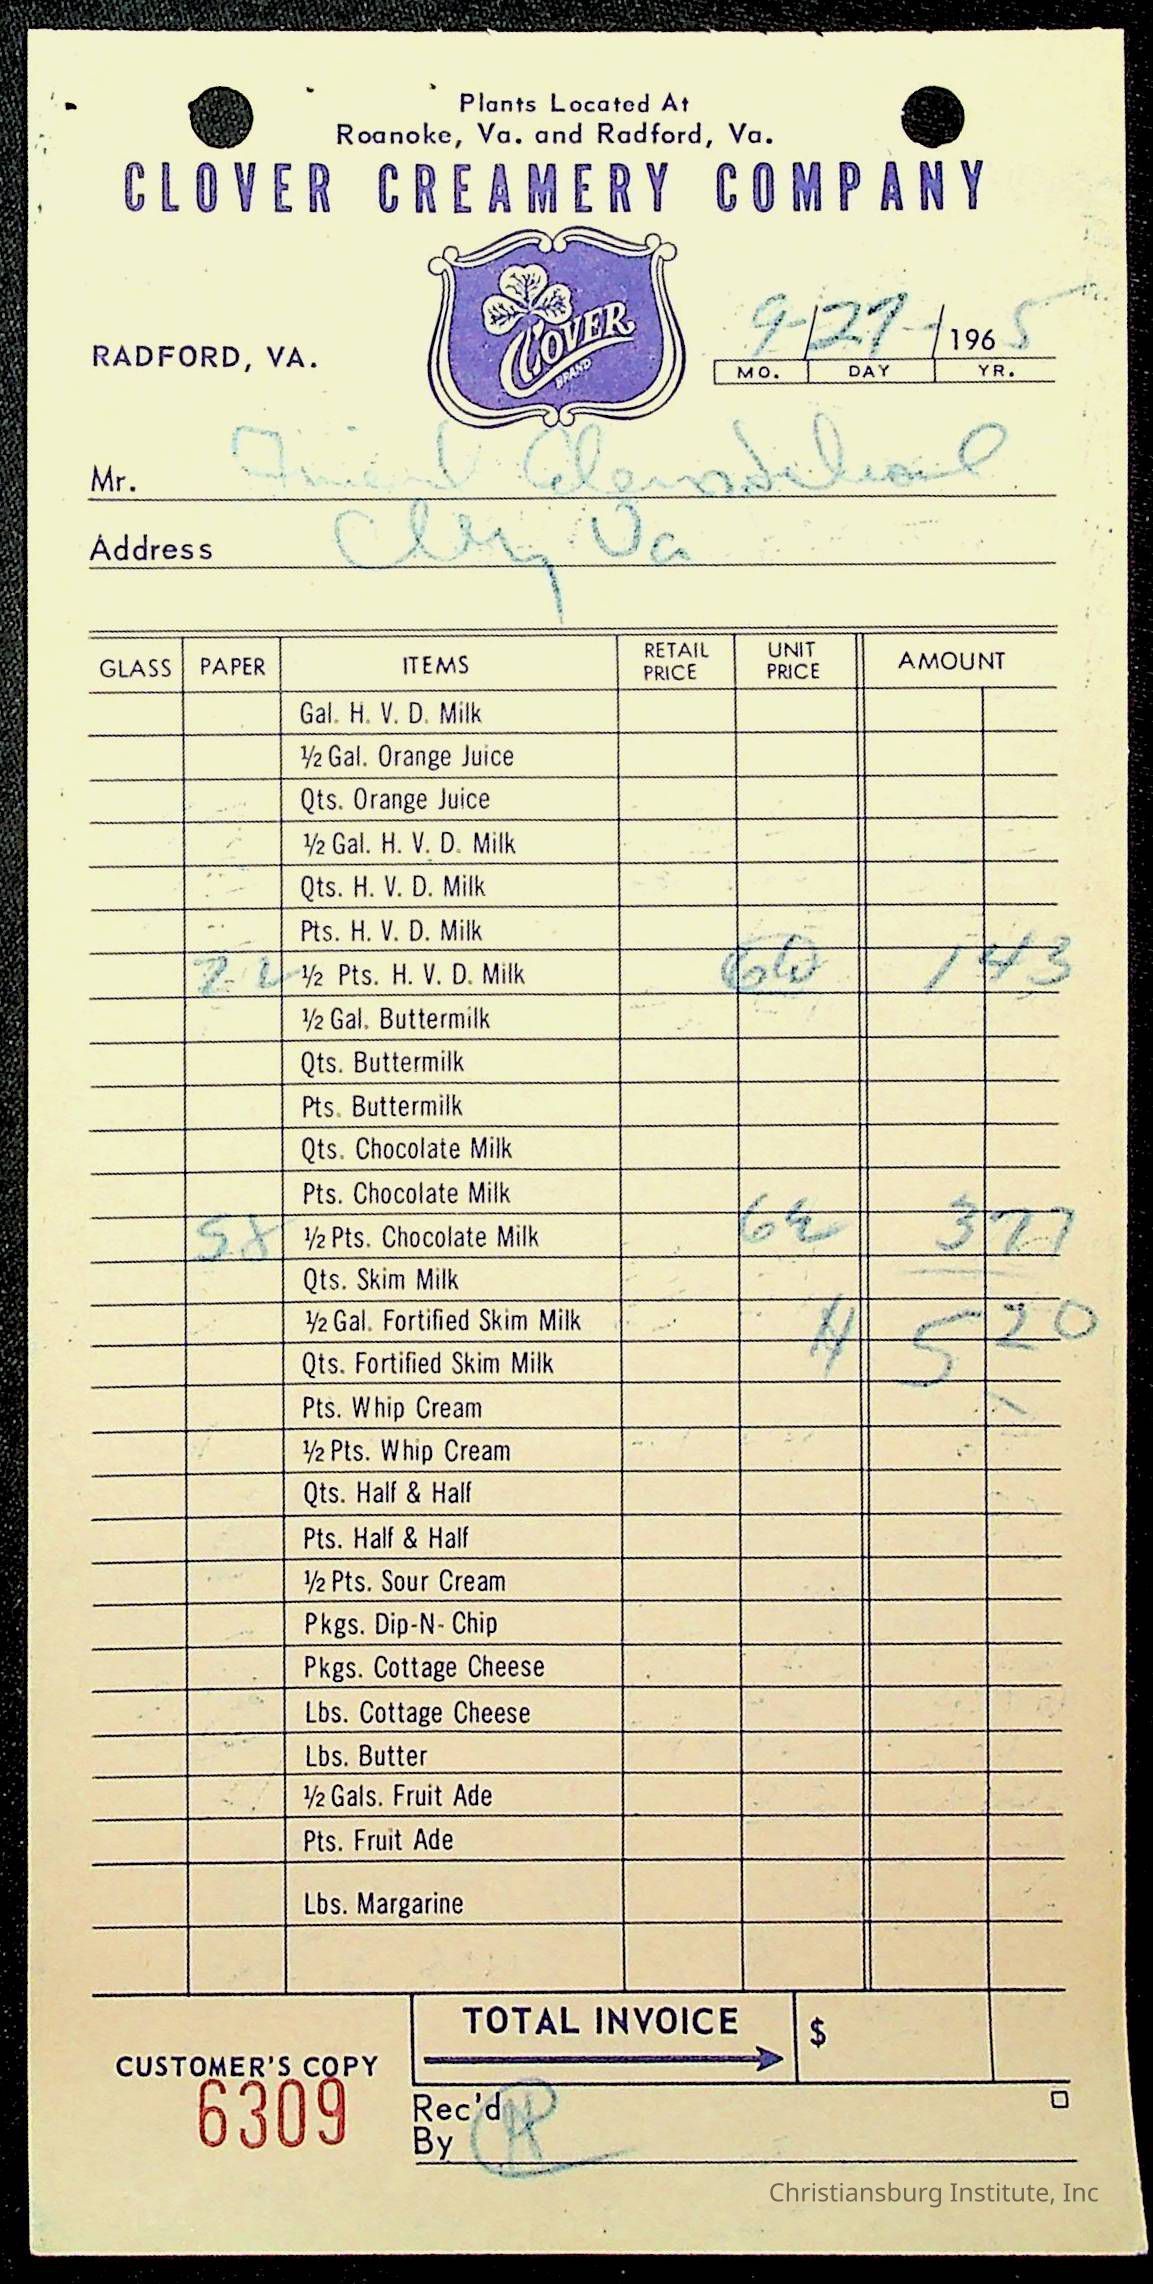 Plants Located At
Roanoke, Va. and Radford, Va.
CLOVER CREAMERY COMPANY
CLOVER
BRAND
RADFORD, VA.
9-/27-/1965
MO. DAY YR.
Mr. School
Address Cbg Va
GLASS PAPER ITEMS RETAIL PRICE UNIT PRICE AMOUNT
Gal. H. V. D. Milk
½ Gal. Orange Juice
Qts. Orange Juice
½ Gal. H. V. D. Milk
Qts. H. V. D. Milk
Pts. H. V. D. Milk
22 ½ Pts. H. V. D. Milk 1 43
½ Gal. Buttermilk
Qts. Buttermilk
Pts. Buttermilk
Qts. Chocolate Milk
Pts. Chocolate Milk
58 ½ Pts. Chocolate Milk 3 77
Qts. Skim Milk
½ Gal. Fortified Skim Milk 5 20
Qts. Fortified Skim Milk
Pts. Whip Cream
½ Pts. Whip Cream
Qts. Half & Half
Pts. Half & Half
½ Pts. Sour Cream
Pkgs. Dip-N-Chip
Pkgs. Cottage Cheese
Lbs. Cottage Cheese
Lbs. Butter
½ Gals. Fruit Ade
Pts. Fruit Ade
Lbs. Margarine
TOTAL INVOICE $
CUSTOMER'S COPY
6309
Rec'd
By
Christiansburg Institute, Inc